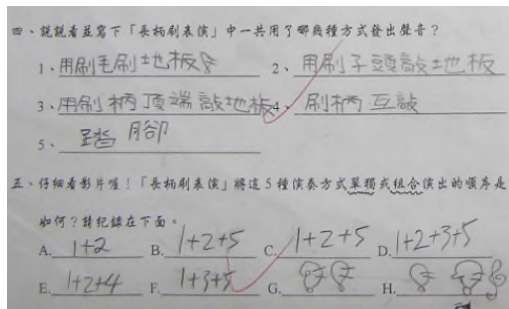 四、說說看並寫下「長柄刷表演」中一共用了哪幾種方式發出聲音？
1、用刷毛刷地板 2、用刷子頭敲土地板
3、用刷柄頂端敲地板 4、刷柄互敲
5、踏腳
五、仔細看影片喔！「長柄刷表演」將這5種演奏方式單獨或組合演出的順序是
如何？請紀錄在下面。
A. 1+2 B. 1+2+5 C. 1+2+5 D. 1+2+3+5
E. 1+2+4 F. 1+3+5 G. H.